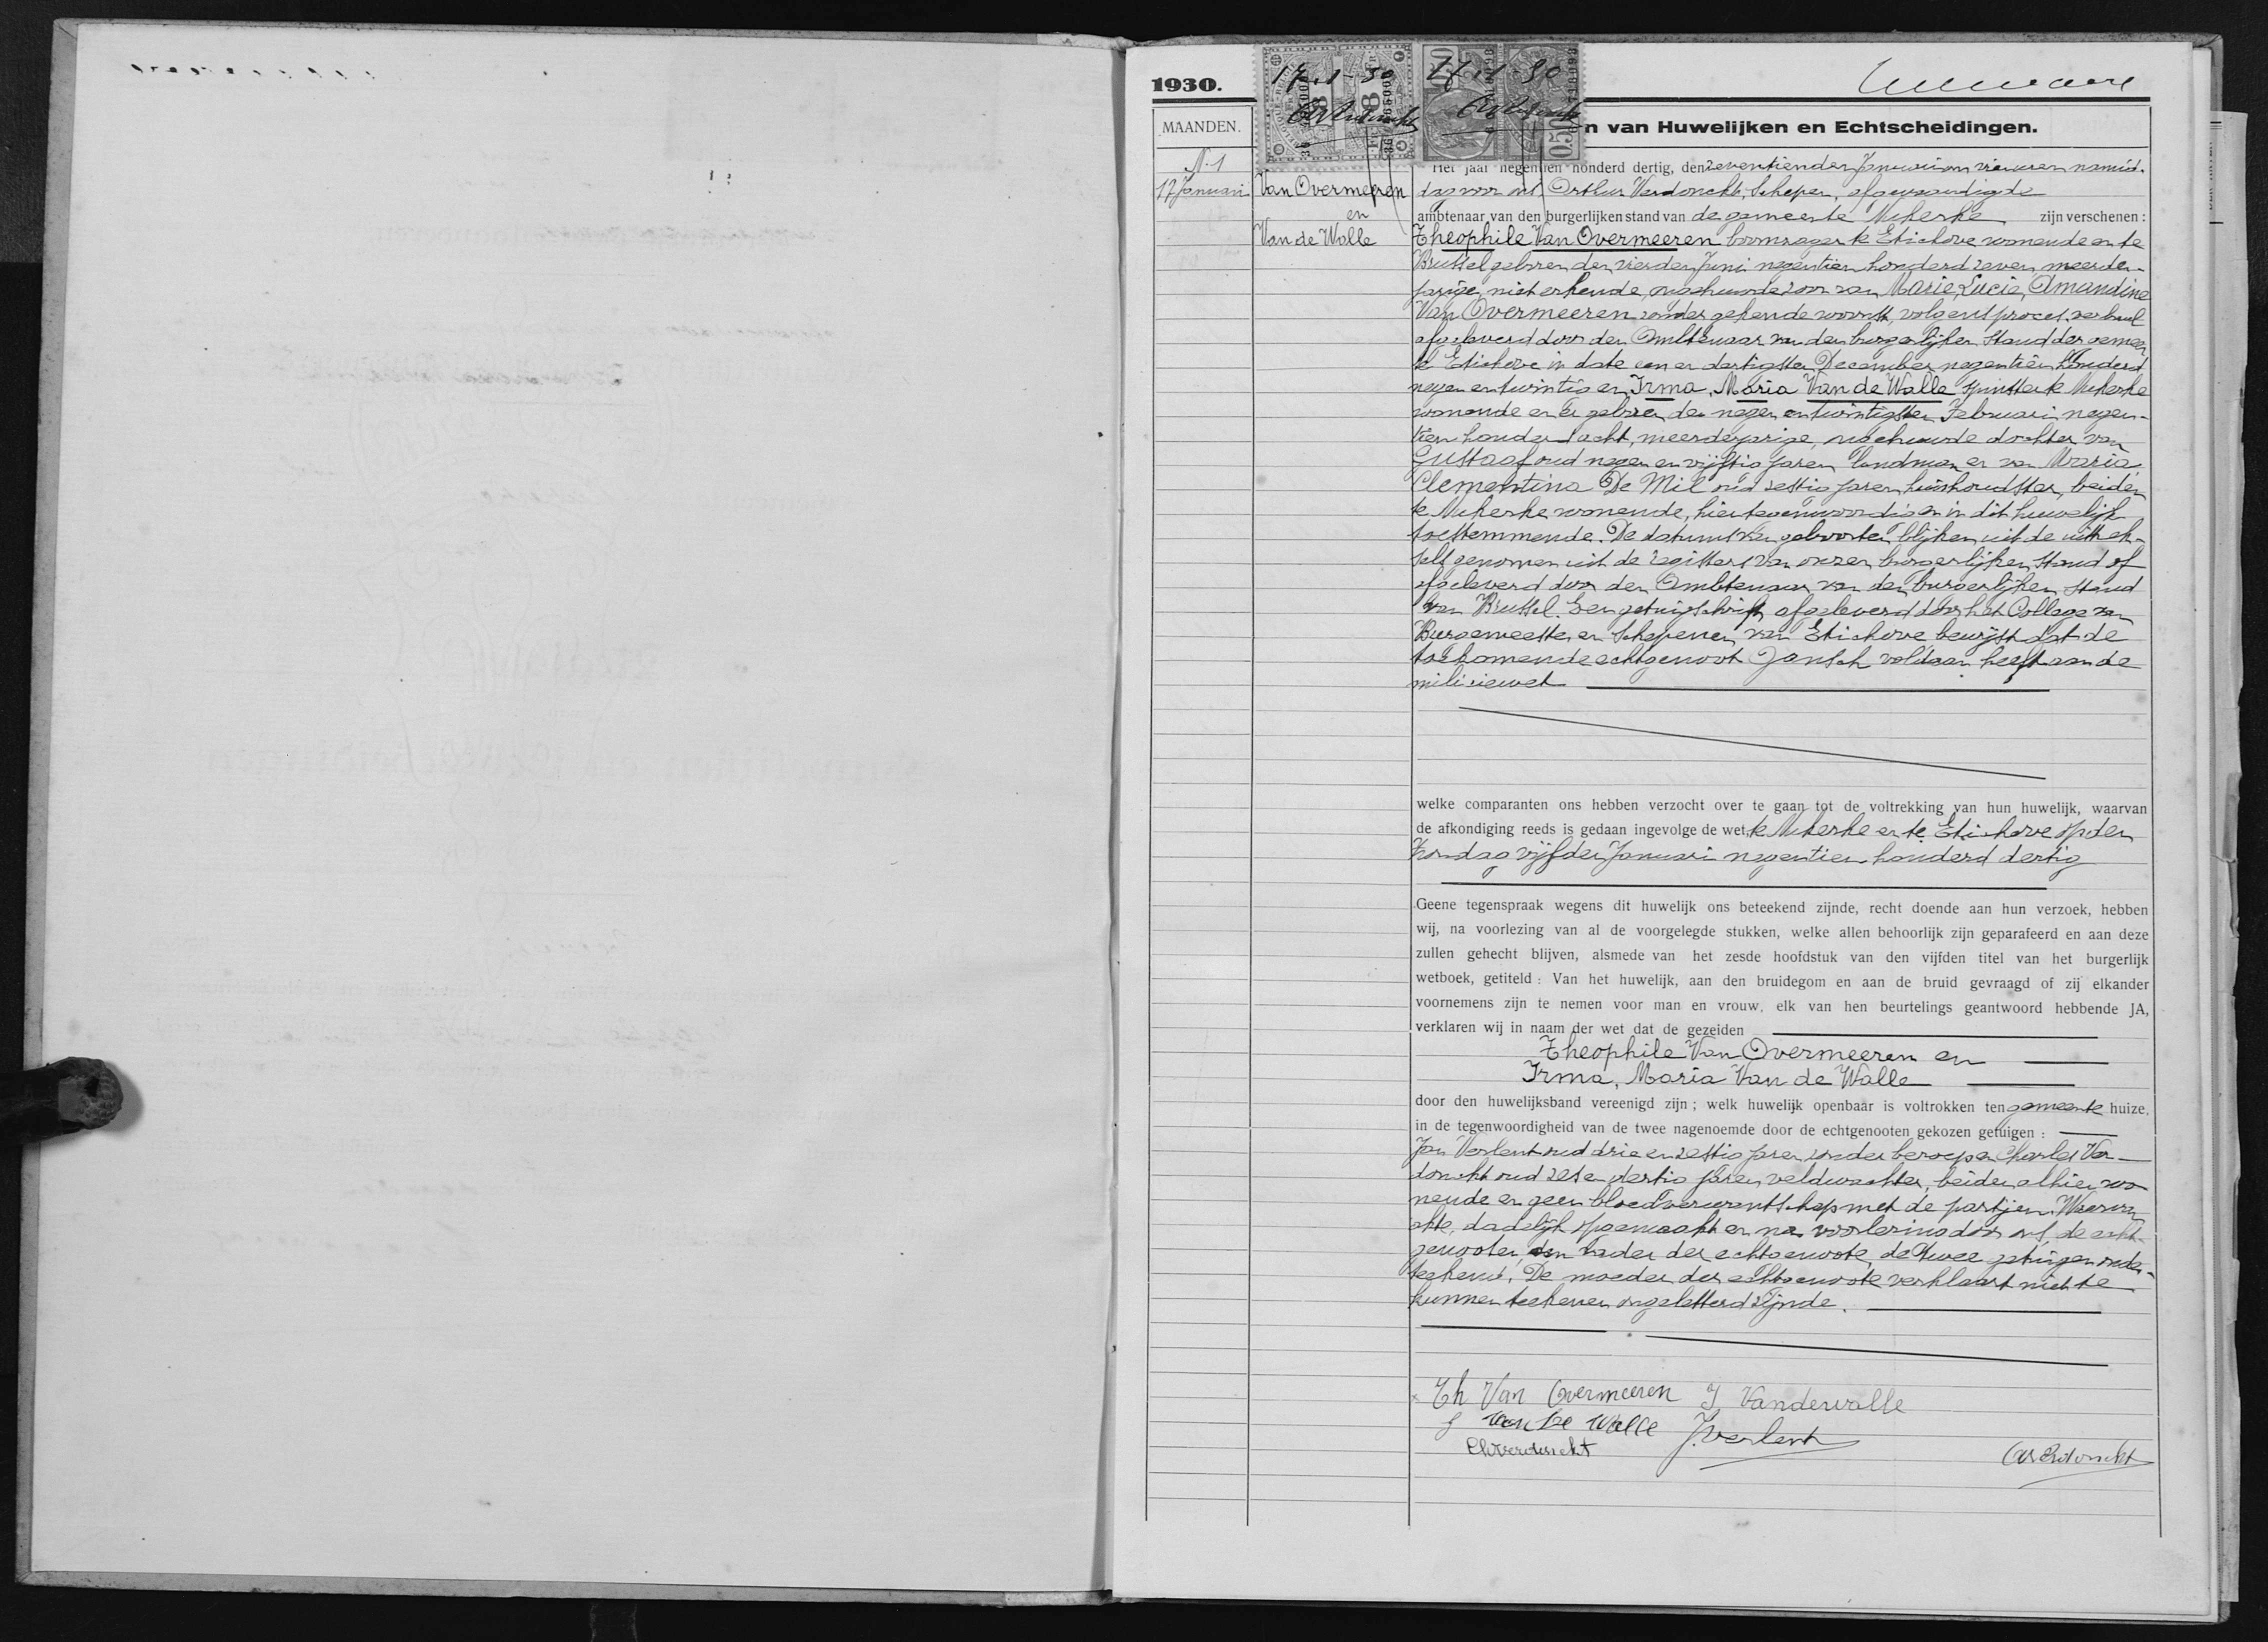 1930.
17-1-30 17-1-30
MAANDEN.
n van Huwelijken en Echtscheidingen.
N. 1
17 Januari
Van Overmeeren
en
Van de Walle
Het jaar negentien honderd dertig, den zeventienden Januari om vier uren namid-
dag voor ons Arthur Verdonckt, Schepen, afgevaardigde
ambtenaar van den burgerlijken stand van de gemeente Nukerke zijn verschenen :
Theophile Van Overmeeren boomzager te Etichove wonende en te
Brussel geboren den vierden Juni negentien honderd zeven, meerder-
jarige, niet erkende, ongehuwde zoon van Marie, Lucie, Amandine
Van Overmeeren zonder gekende woonst, volgens proces-verbaal
afgeleverd door den Ambtenaar van den burgerlijken stand der gemeen
te Etichove in date een en dertigsten December negentien honderd
negen en twintig en Irma, Maria Van de Walle spinster te Nukerke
wonende en er geboren den negen en twintigsten Februari negen-
tien honderd acht, meerderjarige, ongehuwde dochter van
Gustaaf oud negen en vijftig jaren landman en van Maria
Clementina De Mil oud zestig jaren huishoudster, beiden
te Nukerke wonende, hier tegenwoordig en in dit huwelijk
toestemmende. De datums van geboorten blijken uit de uittrek-
sels genomen uit de registers van onzen burgerlijken stand of
afgeleverd door den Ambtenaar van den burgerlijken stand
van Brussel. Een getuigschrift afgeleverd door het College van
Burgemeester en Schepenen van Etichove bewijst dat de
toekomende echtgenoot gansch voldaan heeft aan de
miliciewet
welke comparanten ons hebben verzocht over te gaan tot de voltrekking van hun huwelijk, waarvan
de afkondiging reeds is gedaan ingevolge de wet, te Nukerke en te Etichove op den
Zondag vijfden Januari negentien honderd dertig
Geene tegenspraak wegens dit huwelijk ons beteekend zijnde, recht doende aan hun verzoek, hebben
wij, na voorlezing van al de voorgelegde stukken, welke allen behoorlijk zijn geparafeerd en aan deze
zullen gehecht blijven, alsmede van het zesde hoofdstuk van den vijfden titel van het burgerlijk
wetboek, getiteld : Van het huwelijk, aan den bruidegom en aan de bruid gevraagd of zij elkander
voornemens zijn te nemen voor man en vrouw, elk van hen beurtelings geantwoord hebbende JA,
verklaren wij in naam der wet dat de gezeiden
Theophile Van Overmeeren en
Irma, Maria Van de Walle
door den huwelijksband vereenigd zijn ; welk huwelijk openbaar is voltrokken ten gemeente huize,
in de tegenwoordigheid van de twee nagenoemde door de echtgenooten gekozen getuigen :
Jan Verlent oud drie en zestig jaren zonder beroep en Charles Ver-
donckt oud zes en dertig jaren, veldwachter, beiden alhier wo
nende en geen bloedverwantschap met de partijen. Waarvan
akte, dadelijk opgemaakt en na voorlezing door ons, de echt-
genooten, den vader der echtgenoote, de twee getuigen onder-
teekend. De moeder der echtgenoote verklaart niet te
kunnen teekenen ongeletterd zijnde.
Th Van Overmeeren I Vandewalle
g van De Walle J. Verlent
Ch Verdonckt Ar Verdonckt